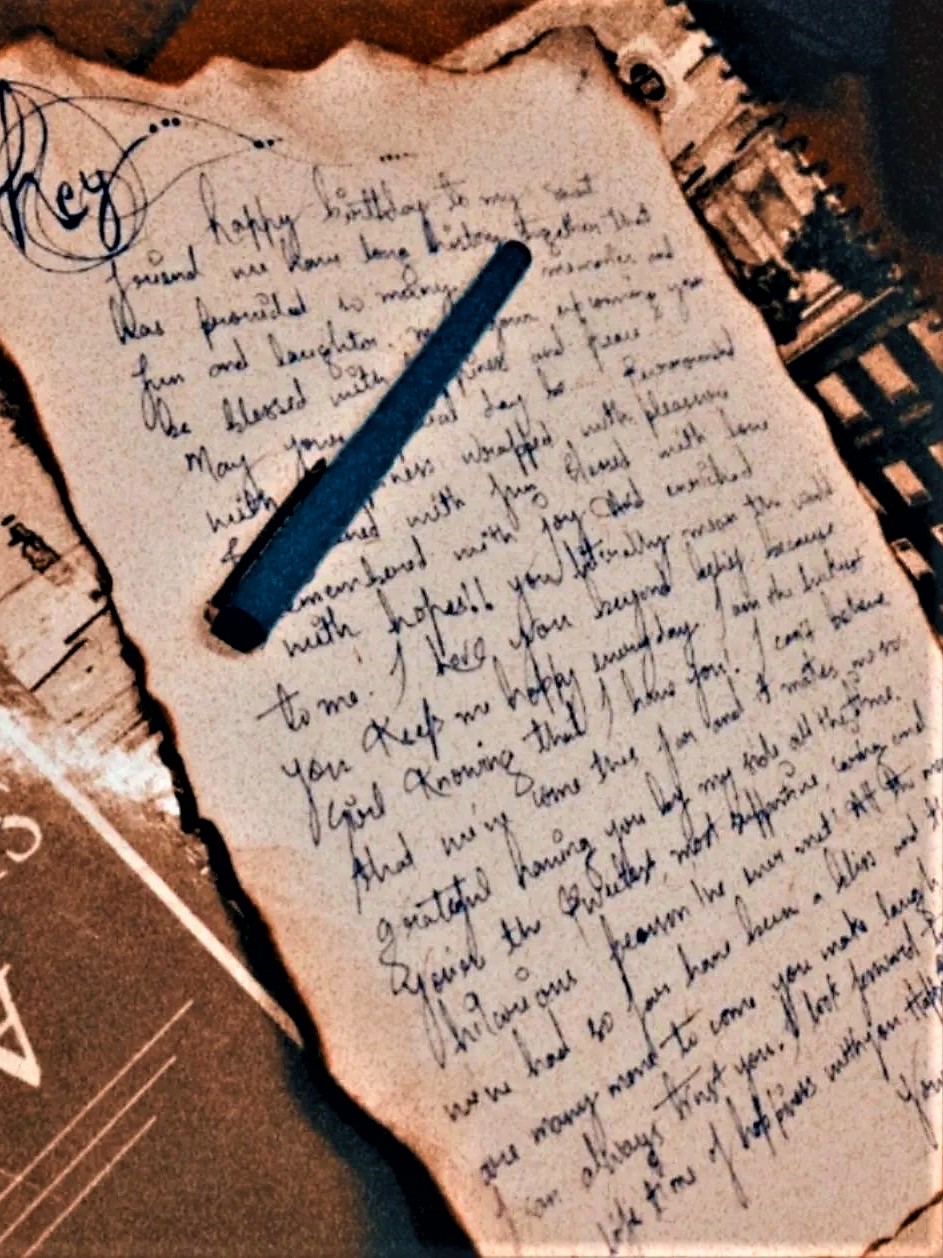 hey
happy birthday to my
friend we have long history together that
has provided so many memories and
fun and laughter. your upcoming year
be blessed with and peace
May your day be Surrounded
with wrapped with pleasure
with joy blessed with love
remembered with joy and enriched
with hopes!! you literally mean the world
to me. I love you beyond belief because
you keep me happy everyday I am the luckiest
girl knowing that I have you. I can't believe
that we've come this far and it makes me so
grateful having you by my side all the time.
your the sweetest, most supportive, caring and
hilarious person I've ever met! All the
we've had so far have been a bliss and
are many more to come you make laugh
I can always trust you. I look forward
life time of happiness with you
You
A